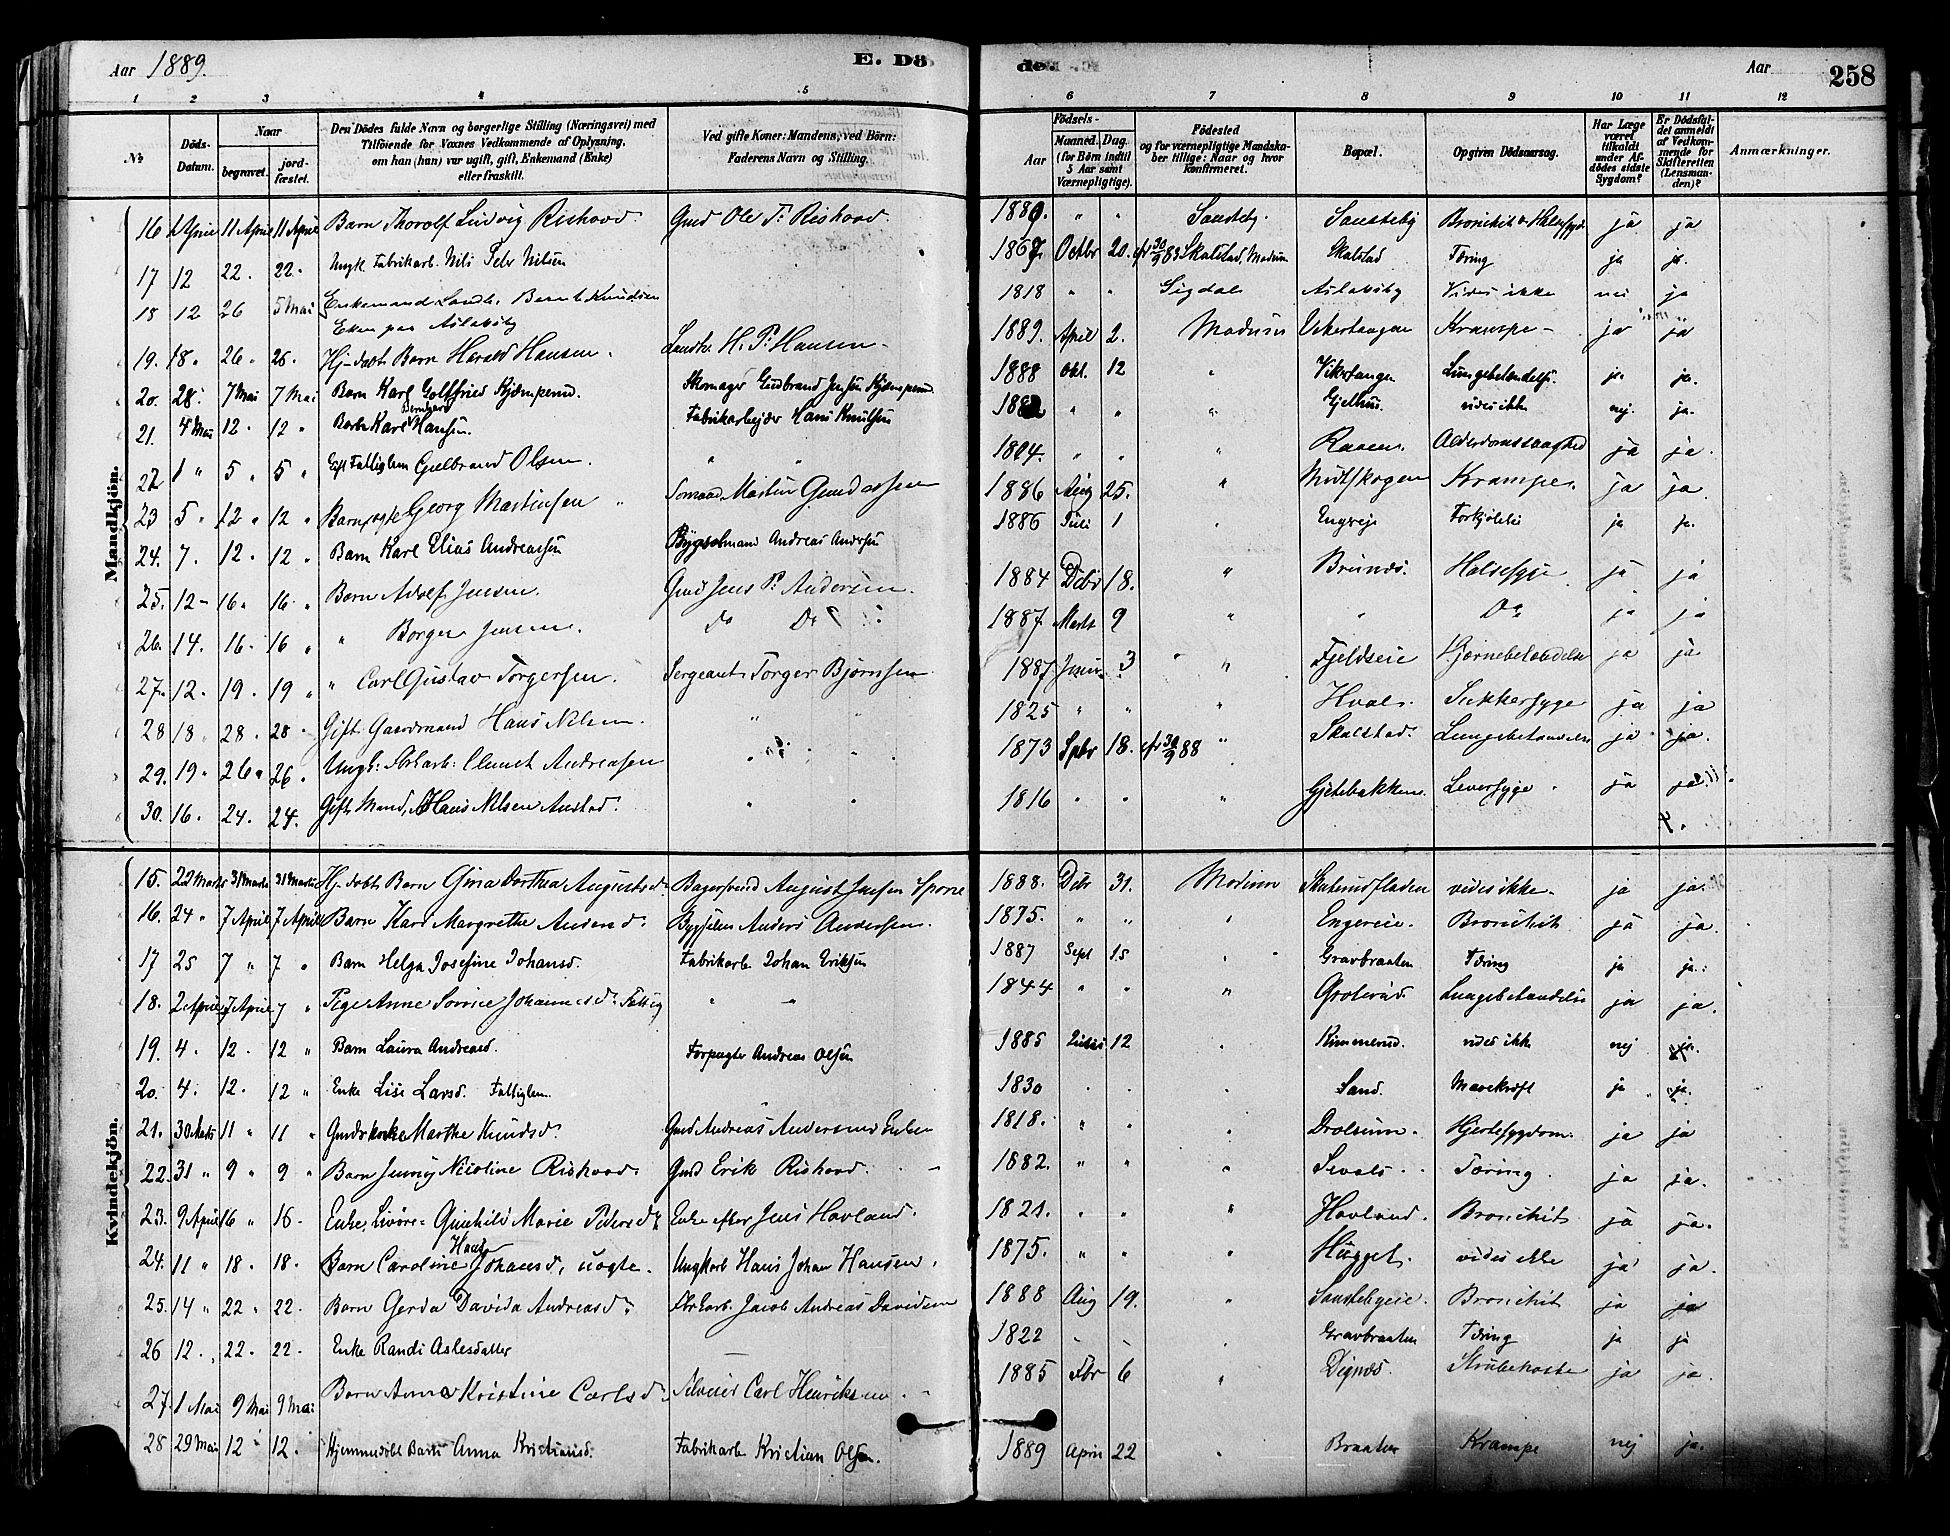 Aar 1889. E. Dö de. Aar 258
1 2 3 4 5 6 7 8 9 10 11 12
№ Döds-Datum. Naar begravet. jord-fæstet. Den Dödes fulde Navn og borgerlige Stilling (Næringsvei) med Tilföiende for Voxnes Vedkommende af Oplysning, om han (hun) var ugift, gift, Enkemand (Enke) eller fraskilt. Ved gifte Koner: Mandens, ved Børn: Faderens Navn og Stilling. Födsels- Aar Maaned. Dag. (for Börn indtil 5 Aar samt Værnepligtige). Födested og for værnepligtige Mandskaber tillige: Naar og hvor konfirmeret. Bopæl. Opgiven Dödsaarsag. Har Læge været tilkaldt under Afdödes sidste Sygdom? Er Dödsfaldet anmeldt af Vedkommende for Skifteretten (Lensmanden)? Anmærkninger.
Mandkjön.
16 April 11 April 11 April Barn Thorolf Ludvig Rishovd. Gmd Ole T. Rishovd. 1889. " " Sansteby. Sansteby Bronchit & Halssygd. ja ja
17 12 22. 22. Ungk. Fabrikarb. Nils Peter Nilsen Octbr 20. cfr 30/9 83 Skalstad, Modum Skalstad Tæring ja ja.
18 12 26 5 Mai Enkemand Landh. Bernt Knudsen 1818 " " Sigdal Aslaksby Vides ikke nei ja
Eken paa Aslaksby
19. 18. 26. 26. Hj-døbt Barn Harald Hansen. Landh. H. P. Hansen 1889. April 2. Modum Vikertangen Krampe ja ja
20. 28. 7 Mai 7 Mai Barn Karl Gottfried Kjæmperud. Skomager Gudbrand Jensen Kjæmperud 1888 Okt. 12 " Vikertangen Lungebetændelse. ja ja.
21. 4 Mai 12. 12 " Barn Karl Berndgard Hansen. Fabrikarbejder Hans Knutsen " " " Gjelhus. vides ikke nej. ja.
22 1 " 5 " 5 " Gift Fattiglem Gulbrand Olsen. " " 1804. " " " Raaen. Alderdomssvaghed ja ja.
23 5 " 12 " 12 " Barn Georg Martinsen Martin Gundersen 1886 Aug 25. " Mutskogen Krampe. ja ja.
24. 7. 12. 12 " Barn Karl Elias Andreassen Bygselmand Andreas Andersen 1886 Juli 1 " Engveje Forkjølelse ja ja.
25. 12 16. 16 " Barn Adolf Jensen. Gmd Jens P. Andersen. 1884 Dcbr 18. " Brunæs. Halssyge ja ja
26. 14. 16. 16 " " Borger Jensen. do Do 1887 Marts 9 " " Do ja ja
27. 12. 19. 19 " " Carl Gustav Torgersen. Sergeant Torger Bjørnsen 1887 Juni 3 " Fjeldseie Hjernebetændelse ja ja
28 18 28. 28. Gift Gaardmand Hans Nilsen. " " 1825 " " " Hvals. Sukkersyge ja ja
29. 19. 26 " 26. Ungk. Fbrkarb. Clemet Andreasen " " 1873 Spbr 18. cfr 30/9 88 " Skalstad. Lungebetændelse ja ja.
30. 16. 24. 24. Gift Mand, Hans Nilsen Austad. " " 1816 " " " Gjetebakken. Leversyge ja ja
Kvindekjön.
15. 22 Marts 31 Marts 31 Marts Hj. døbt Barn Gina Dorthea Augustsd. Bagersvend August Jensen Spone 1888. Dcbr 31. Modum Skuterudfladen vides ikke. ja ja.
16. 24 " 7 April 7 April Barn Kari Margrethe Andersd. Bygselm Anders Andersen. 1875. " " " Engereie. Bronchit ja ja.
17 25 7 " 7 " Barn Helga Josefine Johansd. Fabrikarb Johan Eriksen 1887 Sept 15 " Gravbraaten Tæring ja ja.
18. 2 April 7 April 7 " Pige Anne Sørine Johannesd. Fattig " " 1844 " " " Groterud. Lungebetændelse ja ja.
19. 4. 12. 12 " Barn Laura Andreasd. Forpagter Andreas Olsen 1885 12 " Rimmerud. vides ikke nej ja.
20. 4. 12. 12 " Enke Lise Larsd. Fattiglem. 1830 " " " Sand. Mavekræft ja ja.
21. 30 Marts 11 " 11 " Gmdskone Marthe Knudsd. Gmd Andreas Andersen 1818. " " " Drolsum. Hjertesygdom. ja ja
22. 31 " 9 " 9 " Barn Jenny Nicoline Rishovd. Gmd Erik Rishovd. 1882. " " " Sevals. Tæring. ja ja.
23. 9 April 16 " 16. Enke, Livøre Gunhild Marie Pedersd. Enke efter Jens Hovland. 1821. " " " Hovland. Bronchit ja ja.
24. 11 " 18. 18. Barn Caroline Hansd Johansd, uægte. Ungkarl Hans Johan Hansen. 1875. " " " Hugget. vides ikke ja ja.
25. 14 " 22 " 22. Barn Gerda Davida Andreasd. Fbrkarb. Jacob Andreas Davidsen 1888 Aug 19. " Sanstebyeie. Bronchit ja ja
26 12. " 22. 22. Enke Randi Aslesdatter 1822 " Gravbraaten Tæring ja ja
27. 1 Mai 9 Mai 9 Mai Barn Anna Kristine Carlsd. Carl Henriksen 1885 Fbr 6 " Dignæs. Strubehoste ja ja.
28 29 Mai 12 " 12. Hjemmedøbt Barn Anna Kristiansd. Fabrikarb Kristian Olsen. 1889 April 22 " Braaten Krampe nej ja.